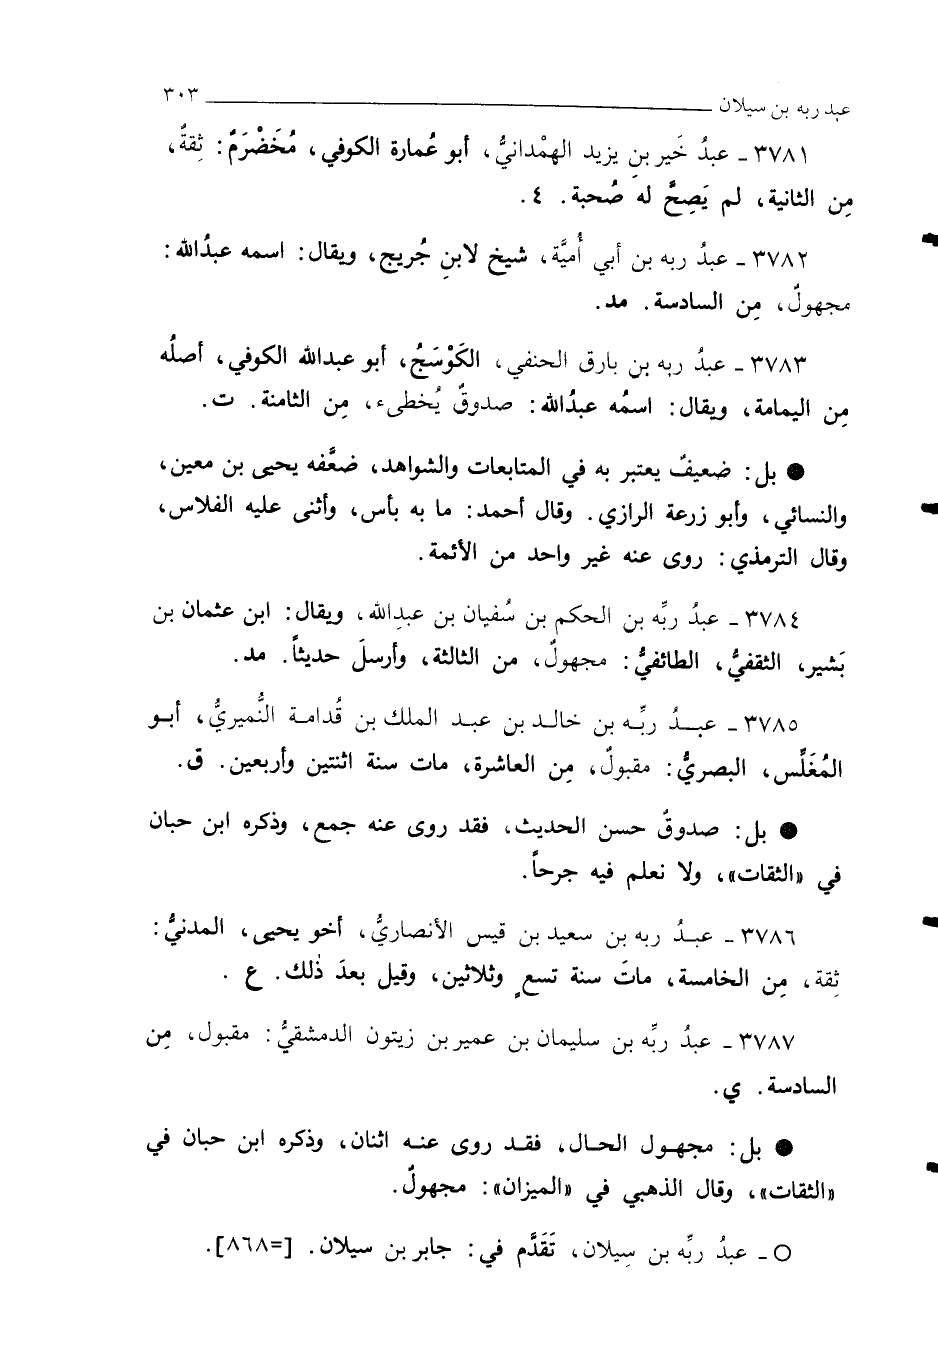 عبد ربه بن سيلان ٣٠٣
٣٧٨١ ـ عبدُ خَير بنِ يزيد الهمْدانيُّ، أبو عُمارة الكوفي، مُخَضْرَمٌ: ثِقةٌ،
مِن الثانية، لم يَصِحَّ له صُحبة. ٤.
٣٧٨٢ ـ عبدُ ربه بن أبي أُميَّة، شيخ لابنِ جُريج، ويقال: اسمه عبدُالله:
مجهولٌ، مِن السادسة. مد.
٣٧٨٣ ـ عبدُ ربه بن بارق الحنفي، الكَوْسَجُ، أبو عبدالله الكوفي، أصلُه
مِن اليمامة، ويقال: اسمُه عبدُالله: صدوقٌ يُخطىء، مِن الثامنة. ت.
● بل: ضعيفٌ يعتبر به في المتابعات والشواهد، ضعَّفه يحيى بن معين،
والنسائي، وأبو زرعة الرازي. وقال أحمد: ما به بأس، وأثنى عليه الفلاس،
وقال الترمذي: روى عنه غير واحد من الأئمة.
٣٧٨٤ ـ عبدُ ربِّه بن الحكم بن سُفيان بن عبدِالله، ويقال: ابن عثمان بن
بَشير، الثقفيُّ، الطائفيُّ: مجهولٌ، من الثالثة، وأرسلَ حديثاً. مد.
٣٧٨٥ ـ عبـدُ ربِّـه بن خالـد بن عبـد الملك بن قُدامـة النُّميريُّ، أبـو
المُغَلِّس، البصريُّ: مقبولٌ، مِن العاشرة، مات سنة اثنتين وأربعين. ق.
● بل: صدوقٌ حسن الحديث، فقد روى عنه جمع، وذكره ابن حبان
في «الثقات»، ولا نعلم فيه جرحاً.
٣٧٨٦ ـ عبـدُ ربه بن سعيد بن قيس الأنصاريُّ، أخو يحيى، المدنيُّ:
ثِقة، مِن الخامسة، ماتَ سنة تسعٍ وثلاثين، وقيل بعدَ ذٰلك. ع .
٣٧٨٧ ـ عبدُ ربِّه بن سليمان بن عمير بن زيتون الدمشقيُّ: مقبول، مِن
السادسة. ي.
● بل: مجهـول الحـال، فقـد روى عنـه اثنان، وذكره ابن حبان في
«الثقات»، وقال الذهبي في «الميزان»: مجهولٌ.
○ ـ عبدُ ربِّه بن سِيلان، تَقَدَّم في: جابر بن سيلان. [=٨٦٨].